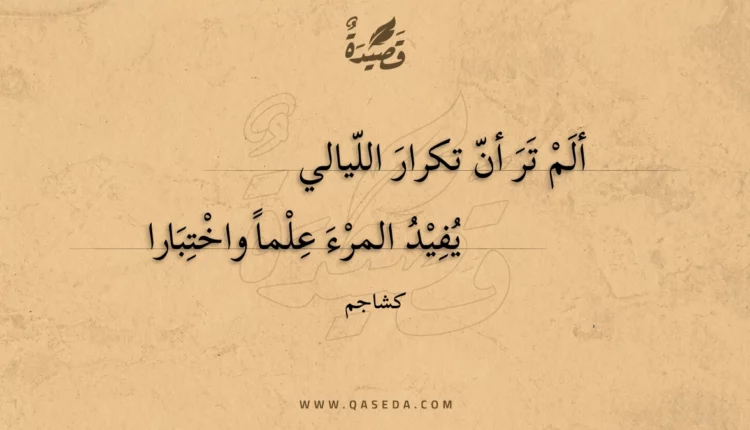 قَصِيْدَةٌ
ألَمْ تَرَ أنّ تكرارَ اللّيالي
يُفِيْدُ المرْءَ عِلْماً واخْتِبَارا
كشاجم
WWW.QASEDA.COM